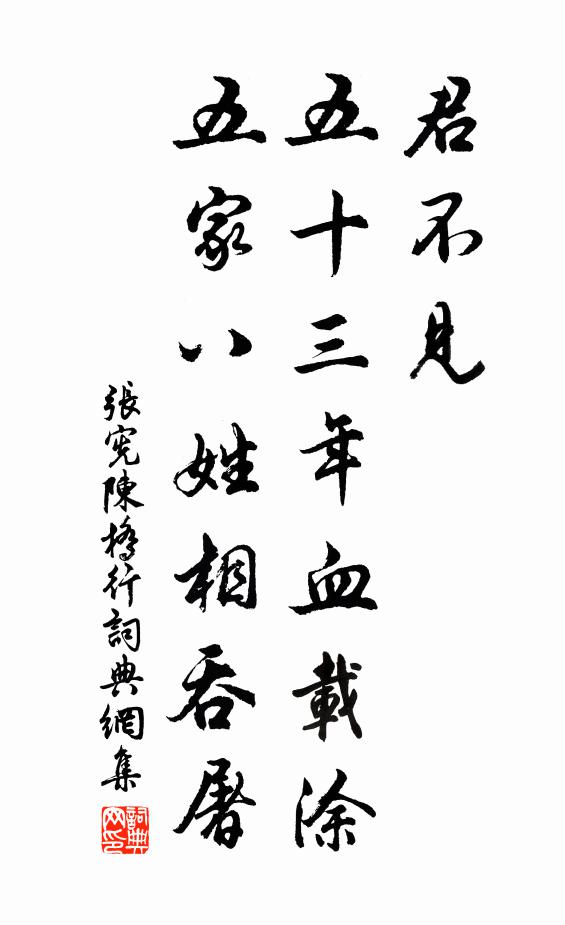 君不見
五十三年血載涂
五家八姓相吞屠
張憲陳橋行詞典網集
詞典网印